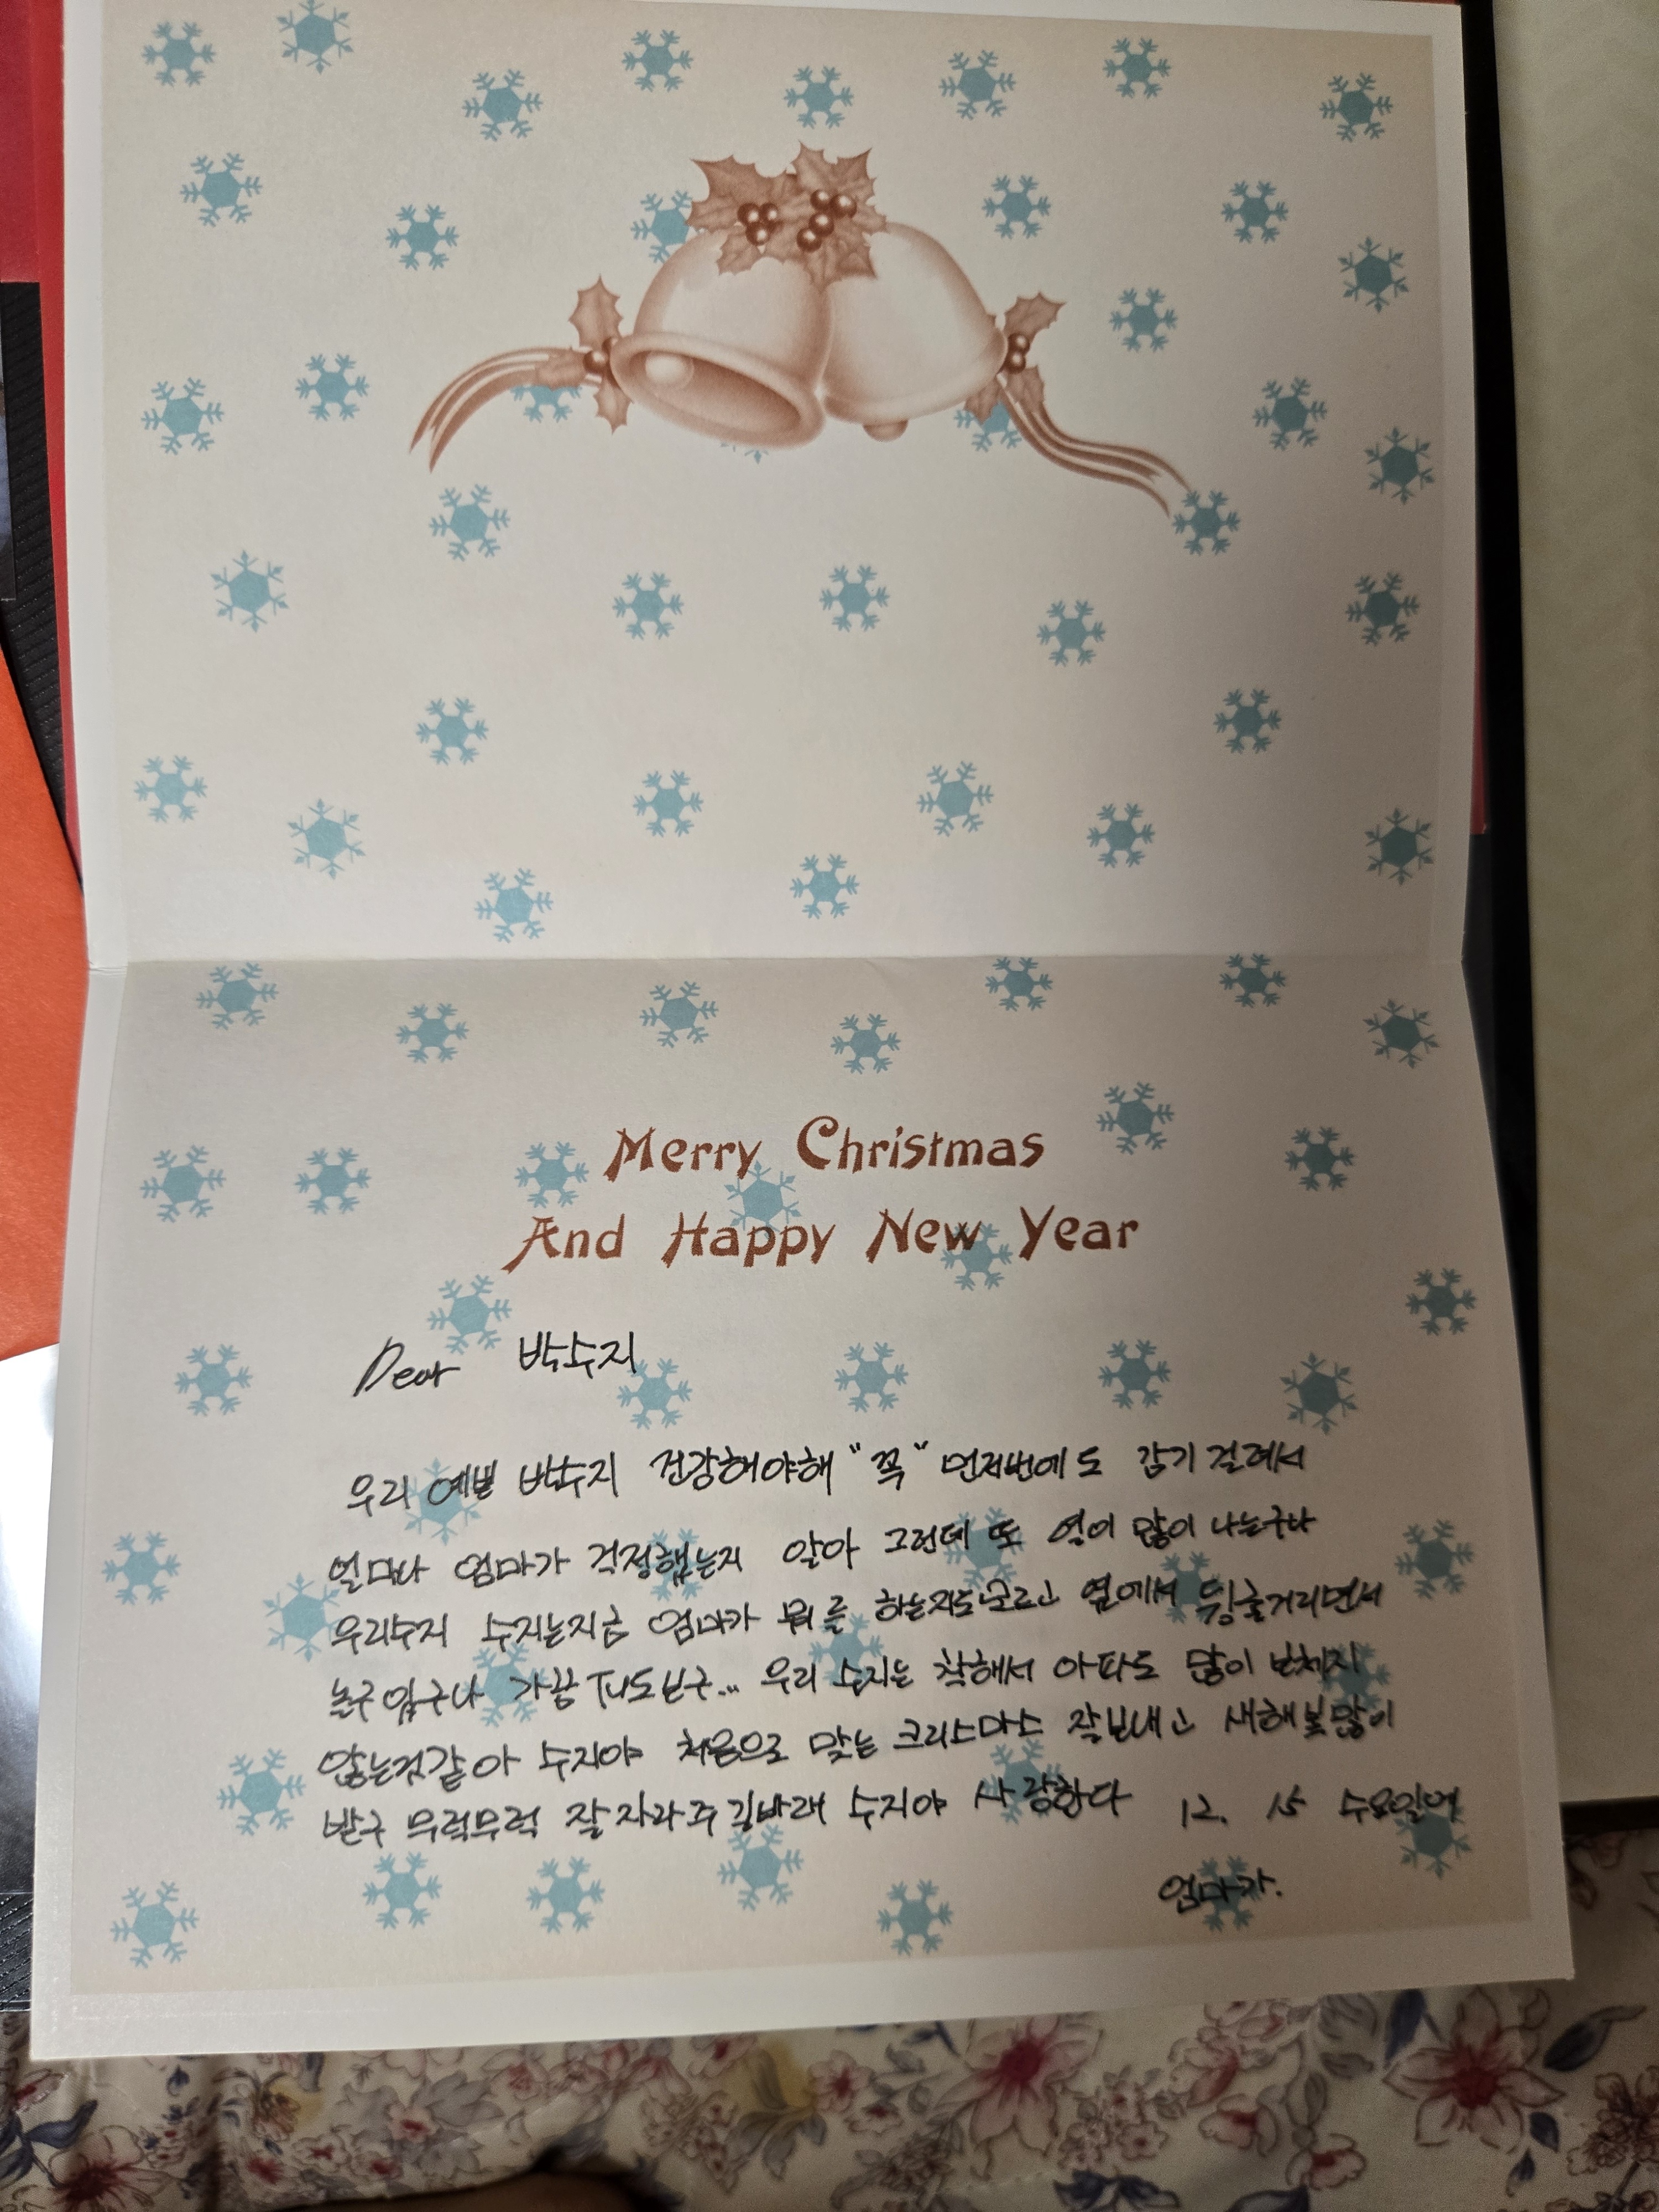 Merry Christmas
And Happy New Year
Dear 박수지
우리 예쁜 박수지 건강해야해 "꼭" 먼저번에도 감기 걸려서
얼마나 엄마가 걱정했는지 알아 그런데 또 열이 많이 나는구나
우리수지 수지는지금 엄마가 뭐를 하는지도모르고 옆에서 뒹굴거리면서
놀구있구나 가끔 TV도보구... 우리 수지는 착해서 아파도 많이 보채지
않는것같아 수지야 처음으로 맞는 크리스마스 잘보내고 새해 복많이
받구 무럭무럭 잘자라주길바래 수지야 사랑한다 12. 15 수요일에
엄마가.